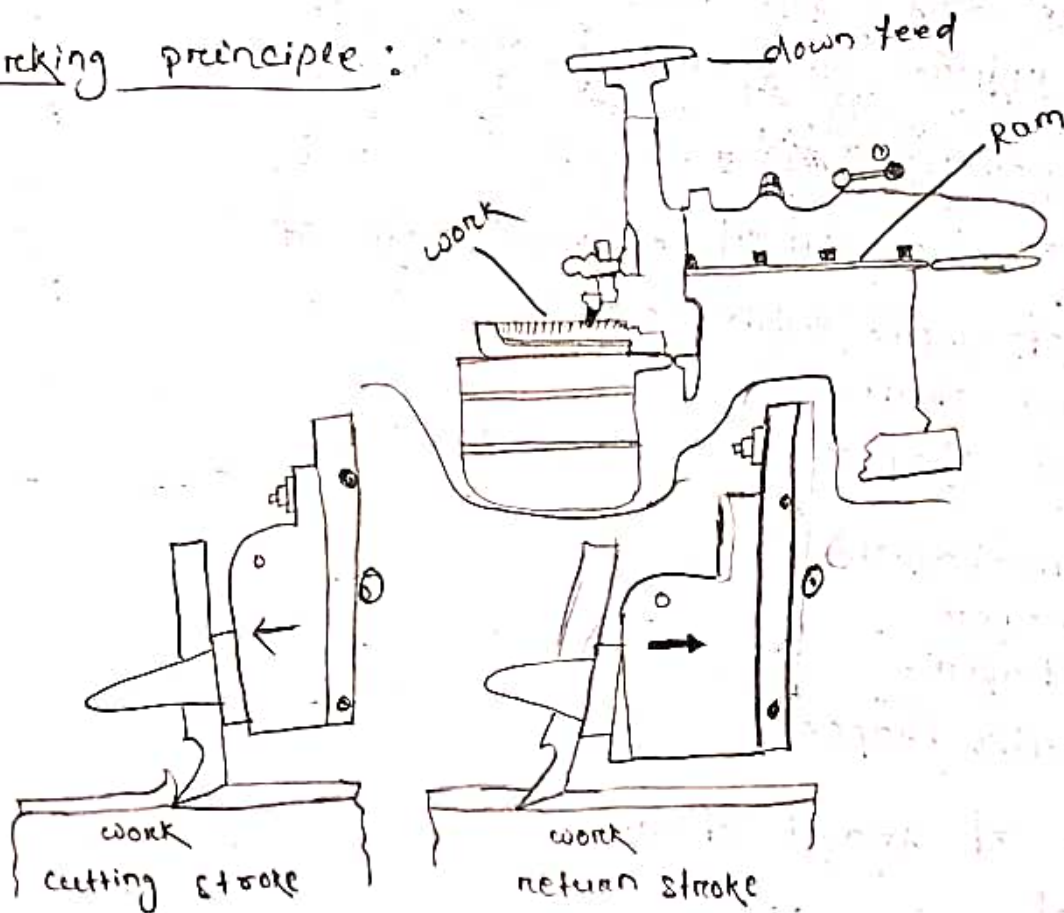 rking principle :
down feed
Ram
work
work
cutting stroke
work
return stroke